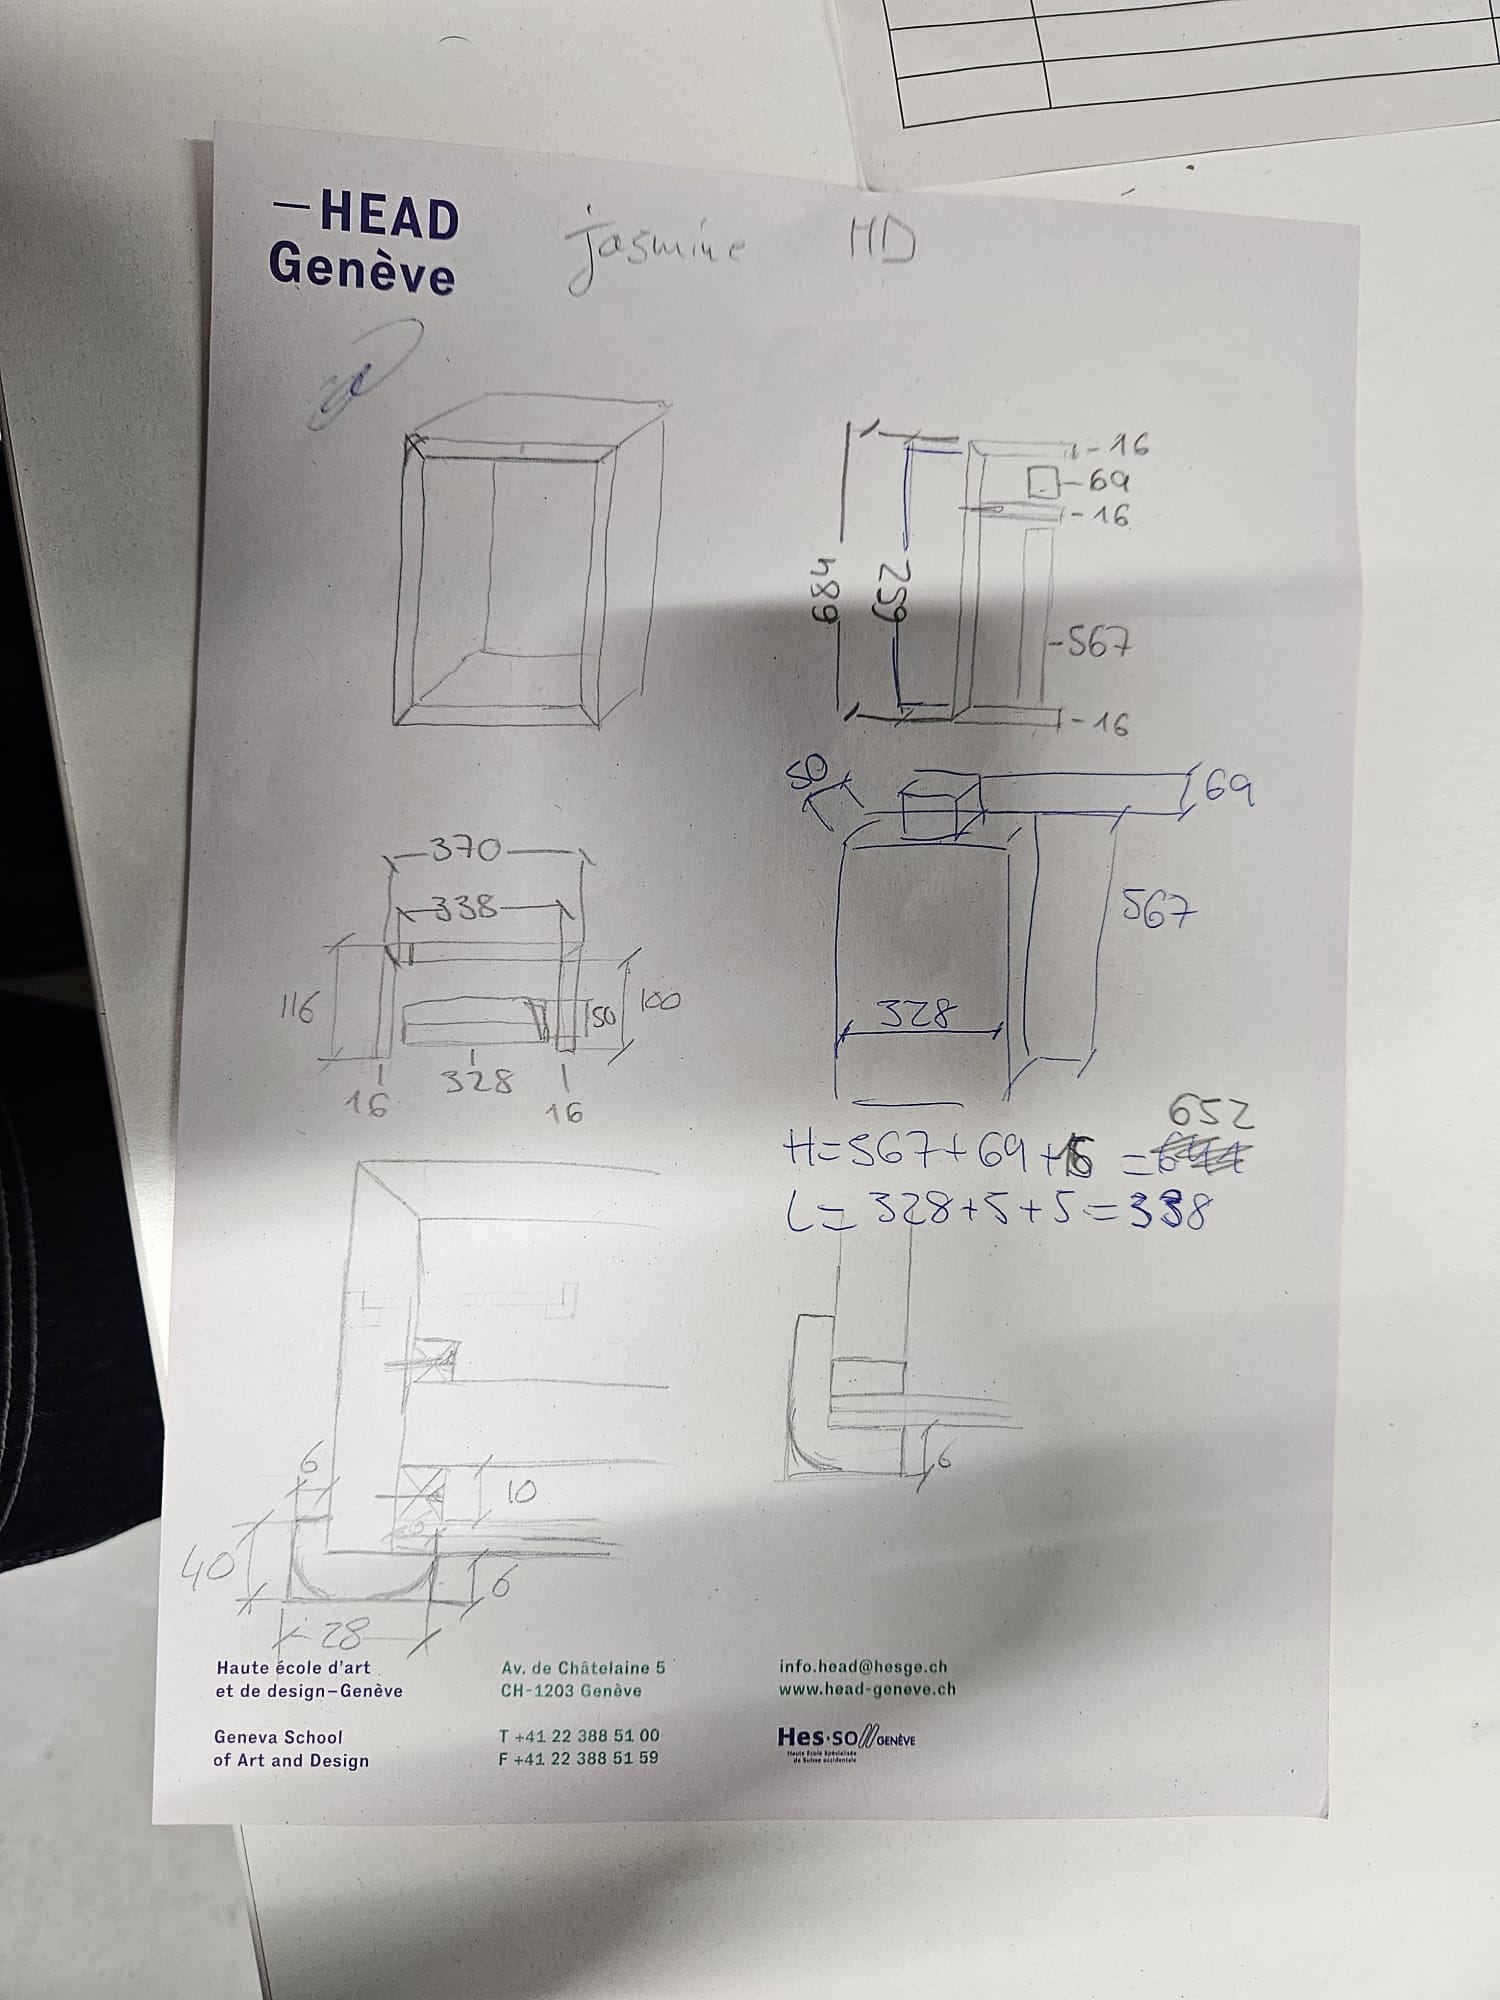 —HEAD
Genève
jasmine HD
16
69
16
684
652
567
16
370
338
116
50
100
16
328
16
50
69
567
328
652
H=567+69+16=
L=328+5+5=338
6
10
40
6
28
6
Haute école d'art
et de design–Genève
Geneva School
of Art and Design
Av. de Châtelaine 5
CH-1203 Genève
T +41 22 388 51 00
F +41 22 388 51 59
info.head@hesge.ch
www.head-geneve.ch
Hes·so GENÈVE
Haute Ecole Spécialisée
de Suisse occidentale